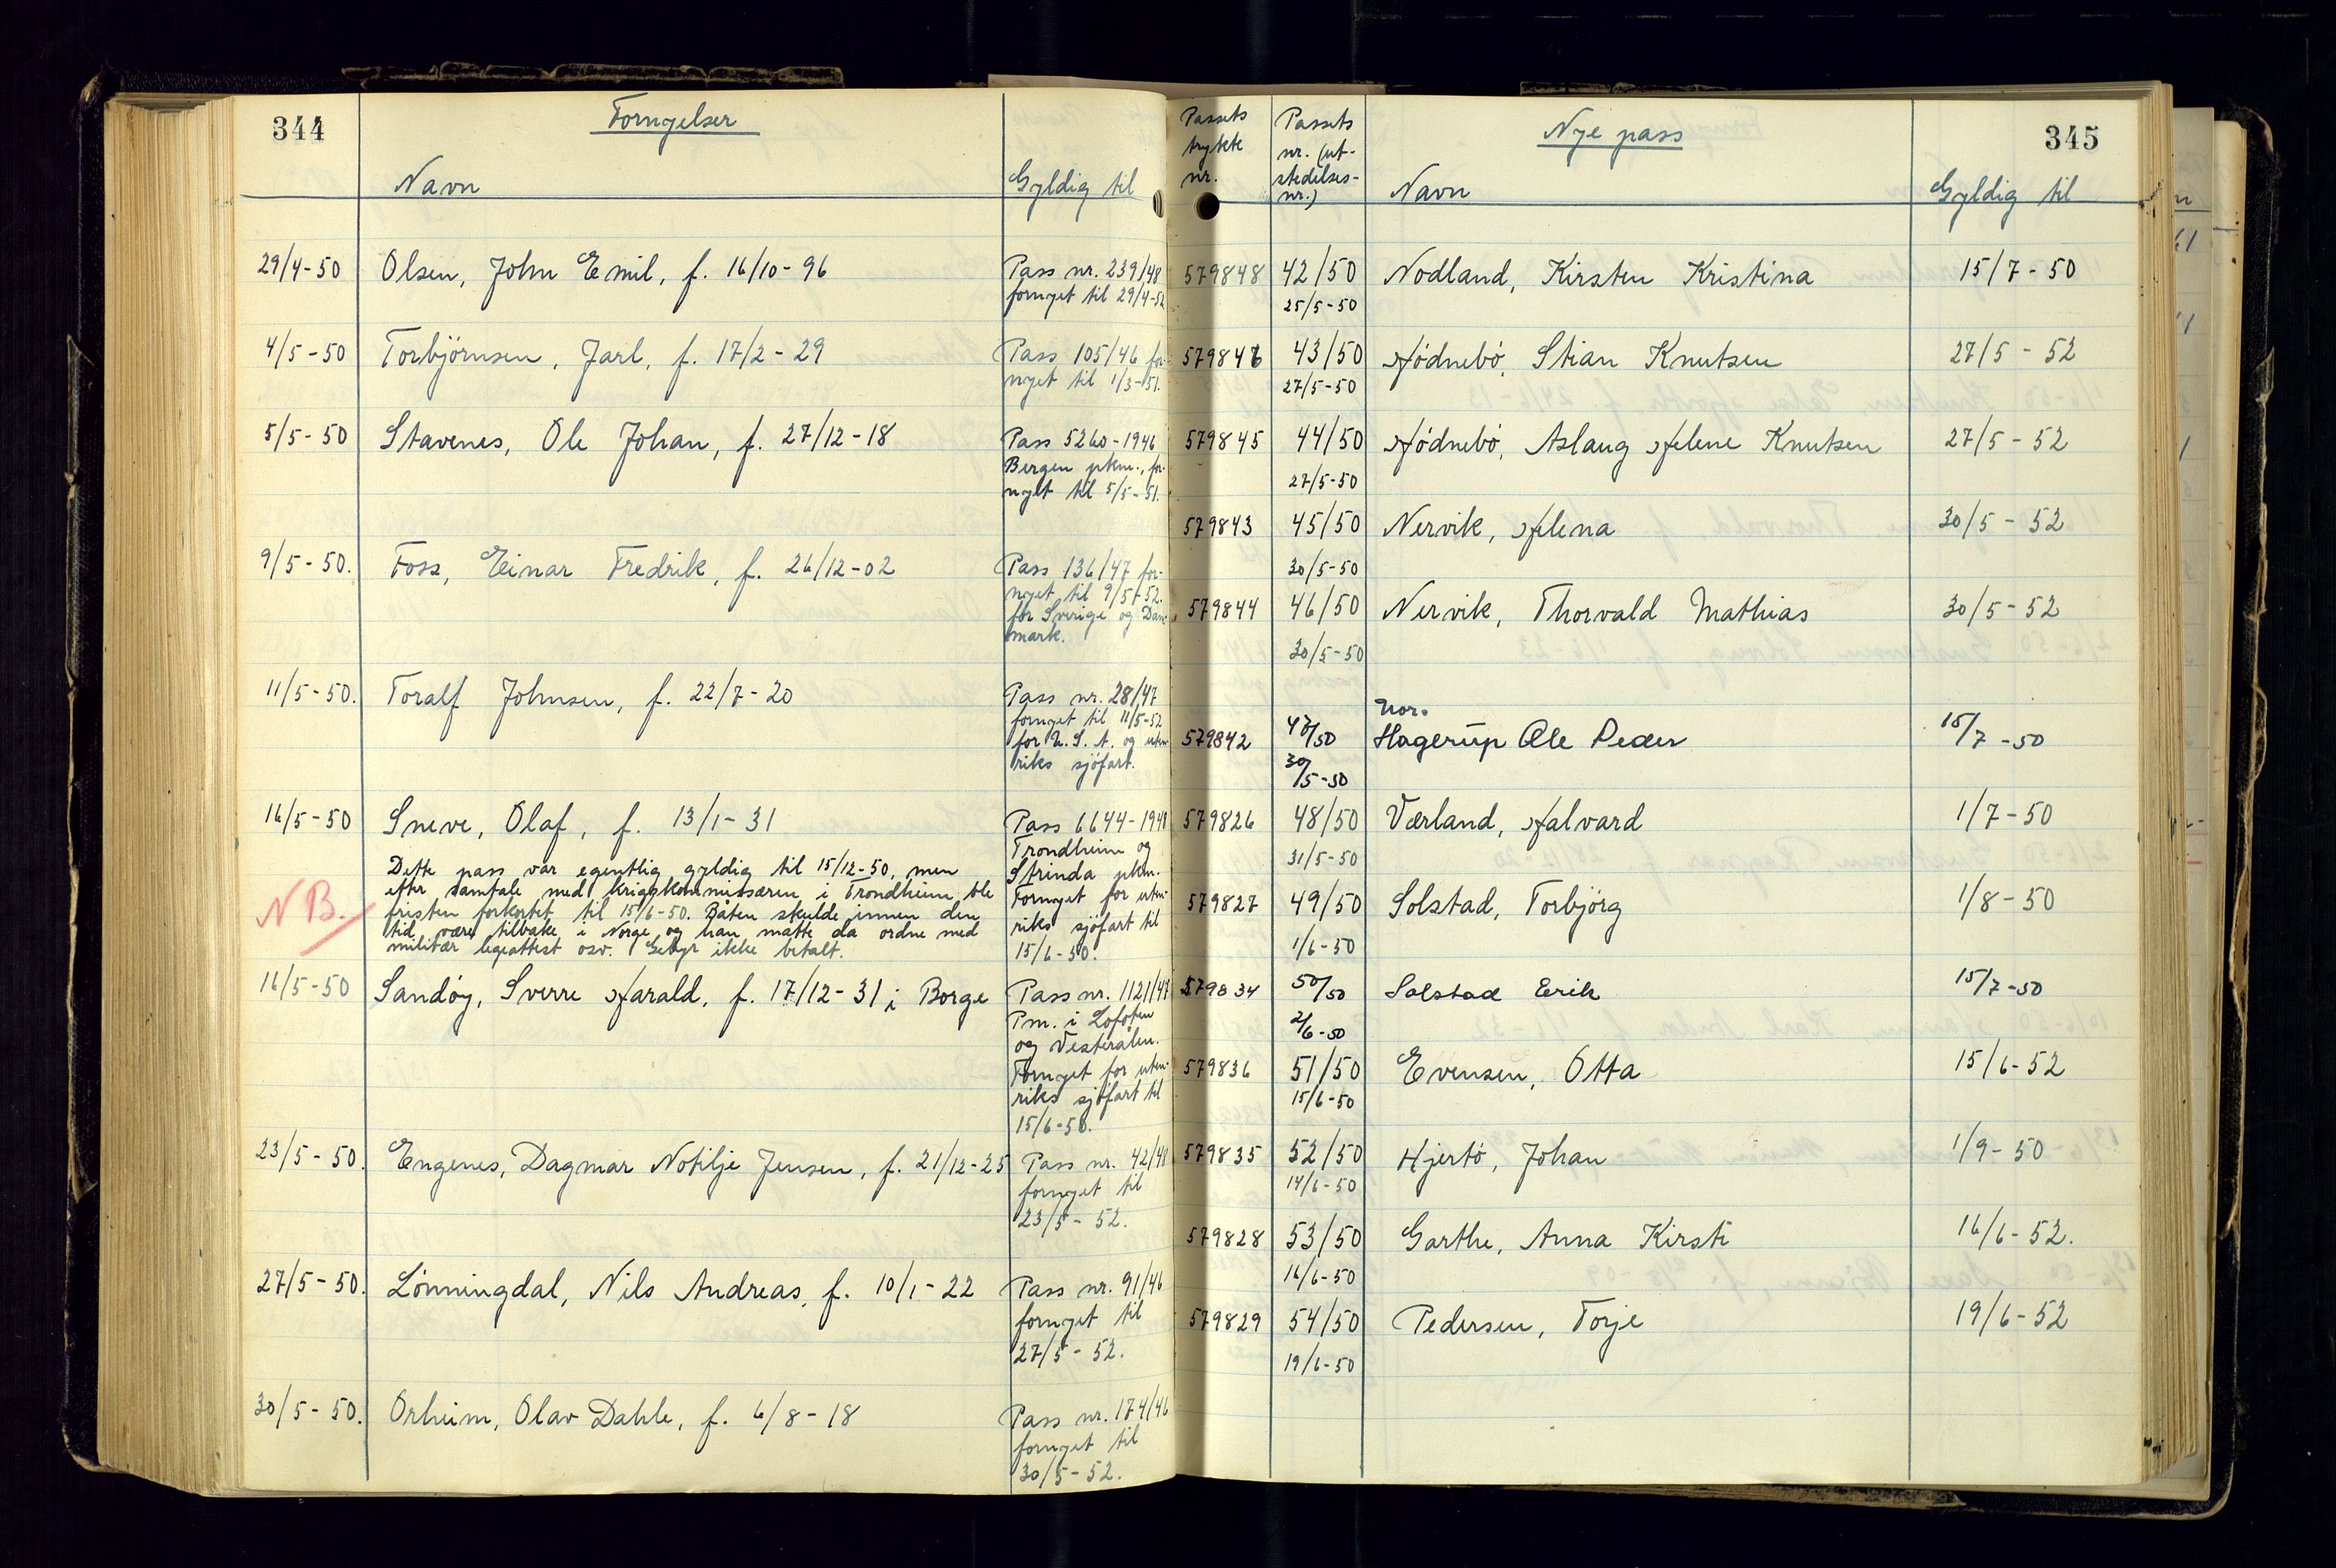 344
Fornyelser
Navn
Gyldig til
29/4-50 Olsen, John Emil, f. 16/10-96
Pass nr. 239/48
fornyet til 29/4-52
4/5-50 Torbjörnsen, Jarl, f. 17/2-29
Pass 105/46 for-
nyet til 1/3-51.
5/5-50 Stavenes, Ole Johan, f. 27/12-18
Pass 5260-1946
Bergen pkm., for-
nyet til 5/5-51.
9/5-50. Foss, Einar Fredrik, f. 26/12-02
Pass 136/47 for-
nyet til 9/5-52.
for Sverige og Dan-
mark.
11/5-50. Toralf Johnsen, f. 22/7-20
Pass nr. 28/47
fornyet til 11/5-52
for U.S.A. og uten-
riks sjöfart.
16/5-50 Sneve, Olaf, f. 13/1-31
Pass 6644-1948
Trondheim og
Strinda pkm.
Fornyet for uten-
riks sjöfart til
15/6-50.
NB.
Dette pass var egentlig gyldig til 15/12-50, men
efter samtale med krigskommissæren i Trondheim ble
fristen forkortet til 15/6-50. Båten skulde innen den
tid være tilbake i Norge og han måtte da ordne med
militær legeattest osv. Gebyr ikke betalt.
16/5-50 Sandöy, Sverre Harald, f. 17/12-31 i Borge
Pass nr. 1121/47
Pm. i Lofoten
og Vesterålen.
Fornyet for uten-
riks sjöfart til
15/6-50.
23/5-50. Engenes, Dagmar Notilje Jensen, f. 21/12-25
Pass nr. 42/48
fornyet til
23/5-52.
27/5-50. Lönningdal, Nils Andreas, f. 10/1-22
Pass nr. 91/46
fornyet til
27/5-52.
30/5-50. Orheim, Olav Dahle, f. 6/8-18
Pass nr. 174/46
fornyet til
30/5-52.
345
Nye pass
Passets
trykte
nr.
Passets
nr. (ut-
stedelses-
nr.)
Navn
Gyldig til
579848 42/50 Nodland, Kirsten Kristina 15/7-50
25/5-50
579846 43/50 Hödnebö, Stian Knutsen 27/5-52
27/5-50
579845 44/50 Hödnebö, Aslaug Helene Knutsen 27/5-52
27/5-50
579843 45/50 Nervik, Helena 30/5-52
30/5-50
579844 46/50 Nervik, Thorvald Mathias 30/5-52
30/5-50
Nor.
579842 47/50 Hagerup Ole Peder 15/7-50
30/5-50
579826 48/50 Værland, Halvard 1/7-50
31/5-50
579827 49/50 Solstad, Torbjörg 1/8-50
1/6-50
579834 50/50 Solstad Erik 15/7-50
2/6-50
579836 51/50 Evensen, Otta 15/6-52
15/6-50
579835 52/50 Hjertö, Johan 1/9-50
14/6-50
579828 53/50 Garthe, Anna Kirsti 16/6-52.
16/6-50
579829 54/50 Pedersen, Torje 19/6-52
19/6-50